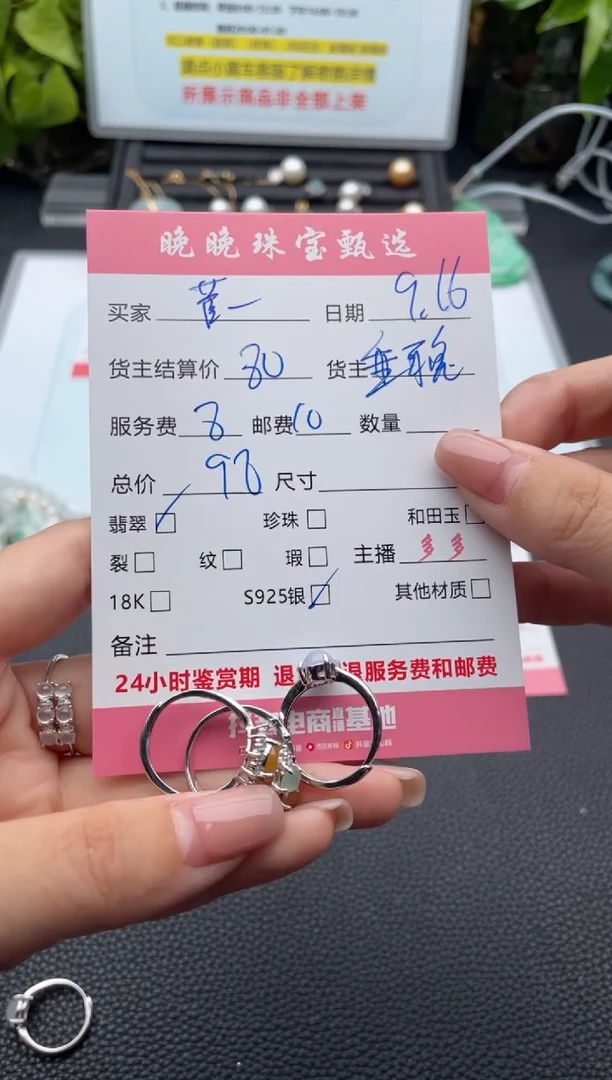 点小黄车客服了解更多详情
所展示商品非全部上架
晚晚珠宝甄选
买家 日期 9.16
货主结算价 80 货主
服务费 8 邮费 10 数量
总价 98 尺寸
翡翠 珍珠 和田玉
裂 纹 瑕 主播 多多
18K S925银 其他材质
备注
24小时鉴赏期 退 退服务费和邮费
电商直播基地